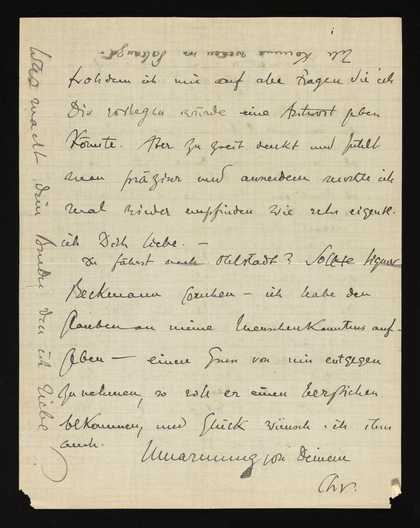 trotzdem ich mir auf alle Fragen die ich
Dir vorlegen würde eine Antwort geben
könnte. Aber zu zweit denkt und fühlt
man präziser und ausserdem möchte ich
mal wieder empfinden wie sehr eigent-
ich Dich liebe. —
Du fährst nach Ohlstadt? Sollte Signor
Beckmann geruhen — ich habe den
Glauben an meine Menschenkenntnis auf-
geben — einen Gruss von mir entgegen
zu nehmen, so soll er einen herzlichen
bekommen, und Glück wünsch ich ihm
auch.
Umarmung von Deinem
Was macht dein Bruder den ich liebe
Ich komme